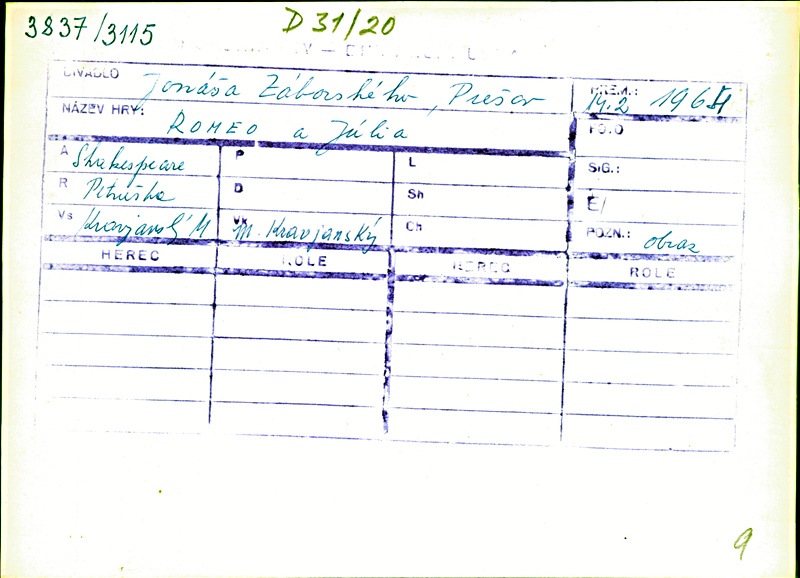 3837/3115
D 31/20
DIVADLO Jonáša Záborského, Prešov PREM.: 14.2 1964
NÁZEV HRY: ROMEO a Júlia FOTO
A Shakespeare P L SIG.:
R Petruška D Sh Č/
Vs Kravjanský M Vk M. Kravjanský Ch POZN.: obraz
HEREC ROLE HEREC ROLE
9